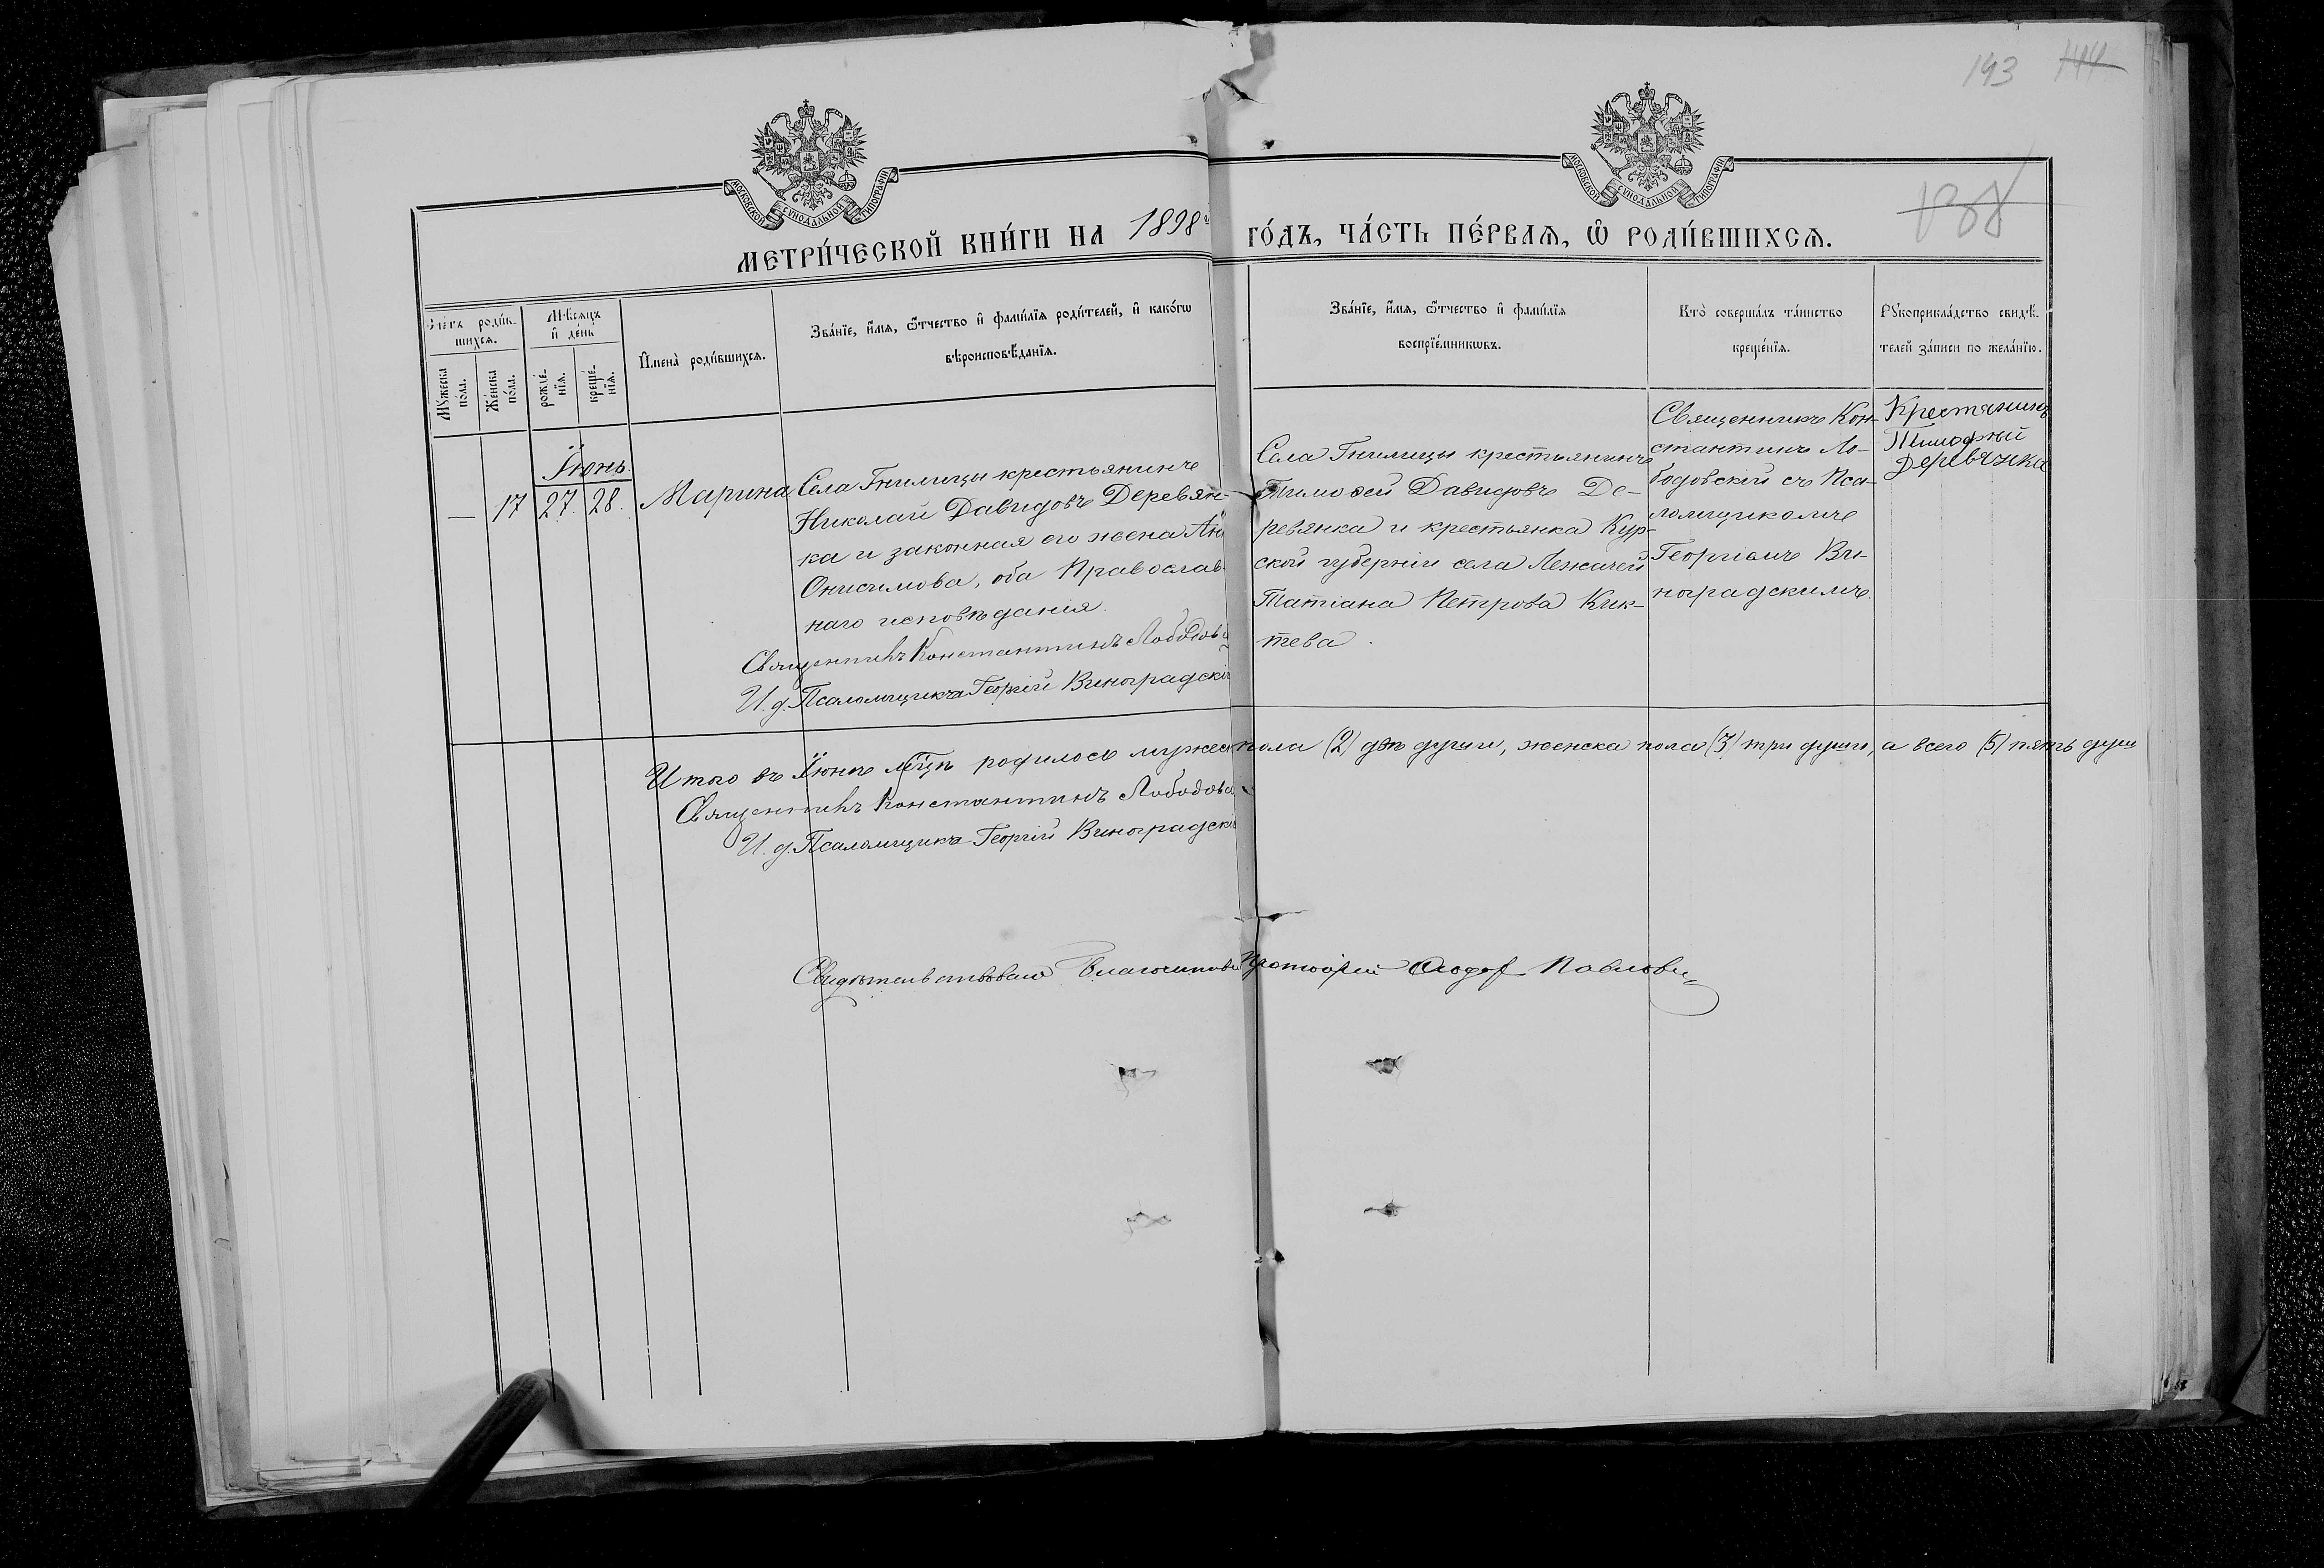 193 144
138
МОСКОВСКОЙ СѴНОДАЛЬНОЙ ТИПОГРАФІИ
МОСКОВСКОЙ СѴНОДАЛЬНОЙ ТИПОГРАФІИ
МЕТРИ́ЧЕСКОЙ КНИ́ГИ НА 1898 го́дъ, ча́сть пе́рваѧ, ѡ҆ роди́вшихсѧ.
Сче́тъ роди́в-
шихсѧ.
Мꙋ́жеска по́ла.
Же́нска по́ла.
Мѣ́сѧцъ и҆ де́нь
рожде́-
нїѧ.
креще́-
нїѧ.
И҆мена̀ роди́вшихсѧ.
Зва́нїе, и҆́мѧ, ѻ҆́тчество и҆ фами́лїѧ роди́телей, и҆ како́гѡ
вѣроисповѣ́данїѧ.
Зва́нїе, и҆́мѧ, ѻ҆́тчество и҆ фами́лїѧ
воспрїе́мникѡвъ.
Кто̀ соверша́лъ та́инство
креще́нїѧ.
Рꙋкоприкла́дство свидѣ́-
телей за́писи по жела́нїю.
Іюнь.
— 17 27. 28. Марина
Села Гнилицы крестьянинъ
Николай Давидовъ Деревян-
ка и законная его жена
Онисимова, оба Православ-
наго исповѣданія.
Священникъ Константинъ Лободовс
И. д. Псаломщика Георгій Виноградскій
Села Гнилицы крестьянинъ
Тимоѳей Давидовъ Де-
ревянка и крестьянка Кур-
ской губерніи села Лежачей
Татіана Петрова Кик-
тева.
Священникъ Кон-
стантинъ Ло-
бодовскій съ Пса-
ломщикомъ
Георгіемъ Ви-
ноградскимъ.
Крестянинъ
Тимофѣй
Деревянка
Итого въ Іюнѣ м҃цѣ родилось мужеск пола (2) двѣ души, женска пола (3) три души, а всего (5) пять душ
Священникъ Константинъ Лободовс
И. д. Псаломщика Георгій Виноградскій
Свидѣтельствовалъ Благочинный Протоіерей Павлов